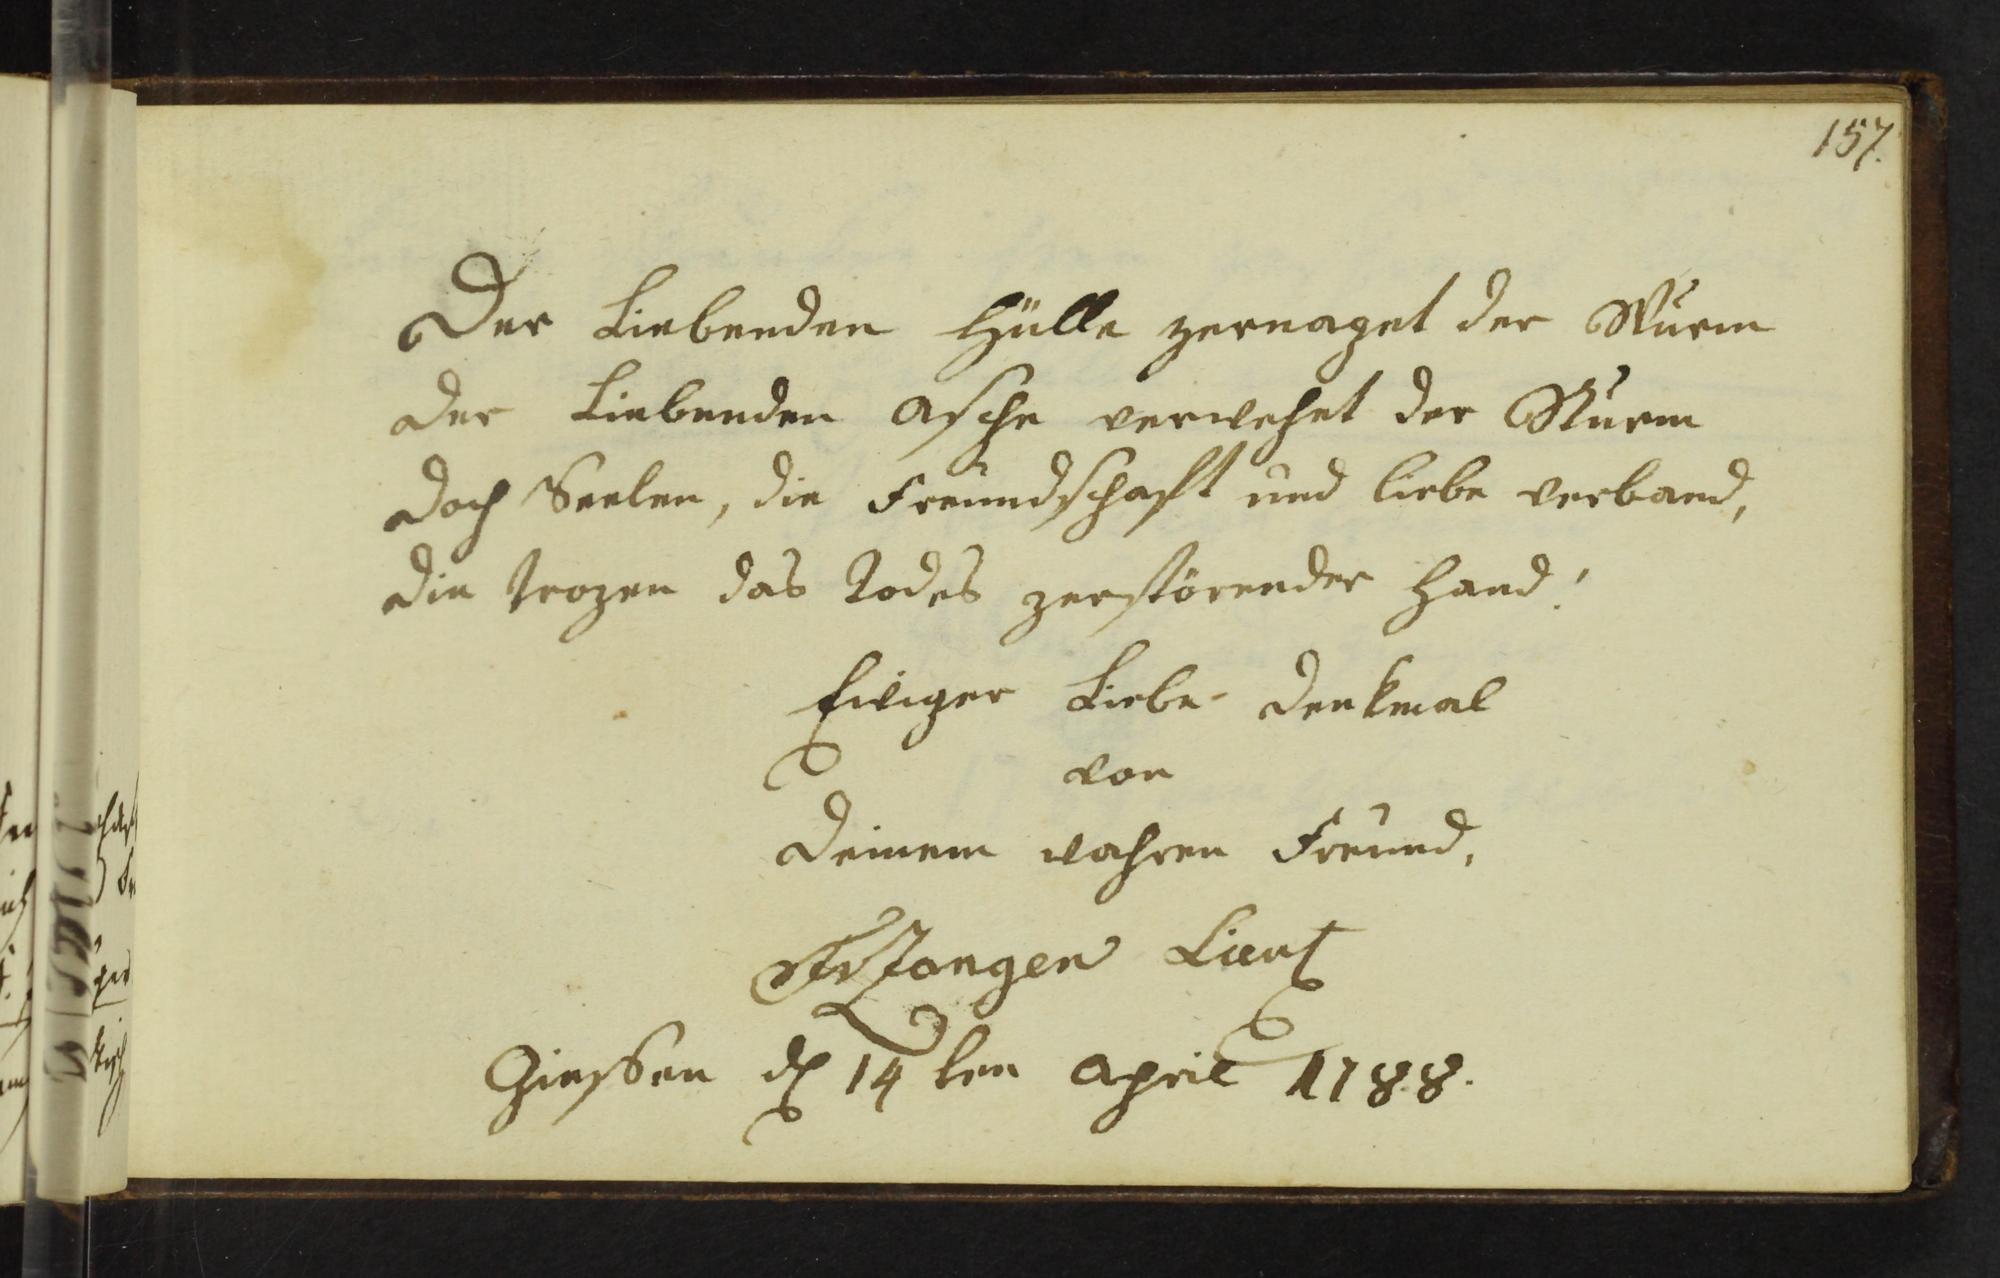 157.
Der Liebenden Hülle zernaget der Wurm
der Liebenden Asche verwehet der Sturm
doch Seelen, die Freündschaft und Liebe verband,
die trozen das Todes zerstörender Hand!
Ewiger Liebe-Denkmal
von
deinem wahren Freünd,
Lieut
Giessen d 14ten April 1788.